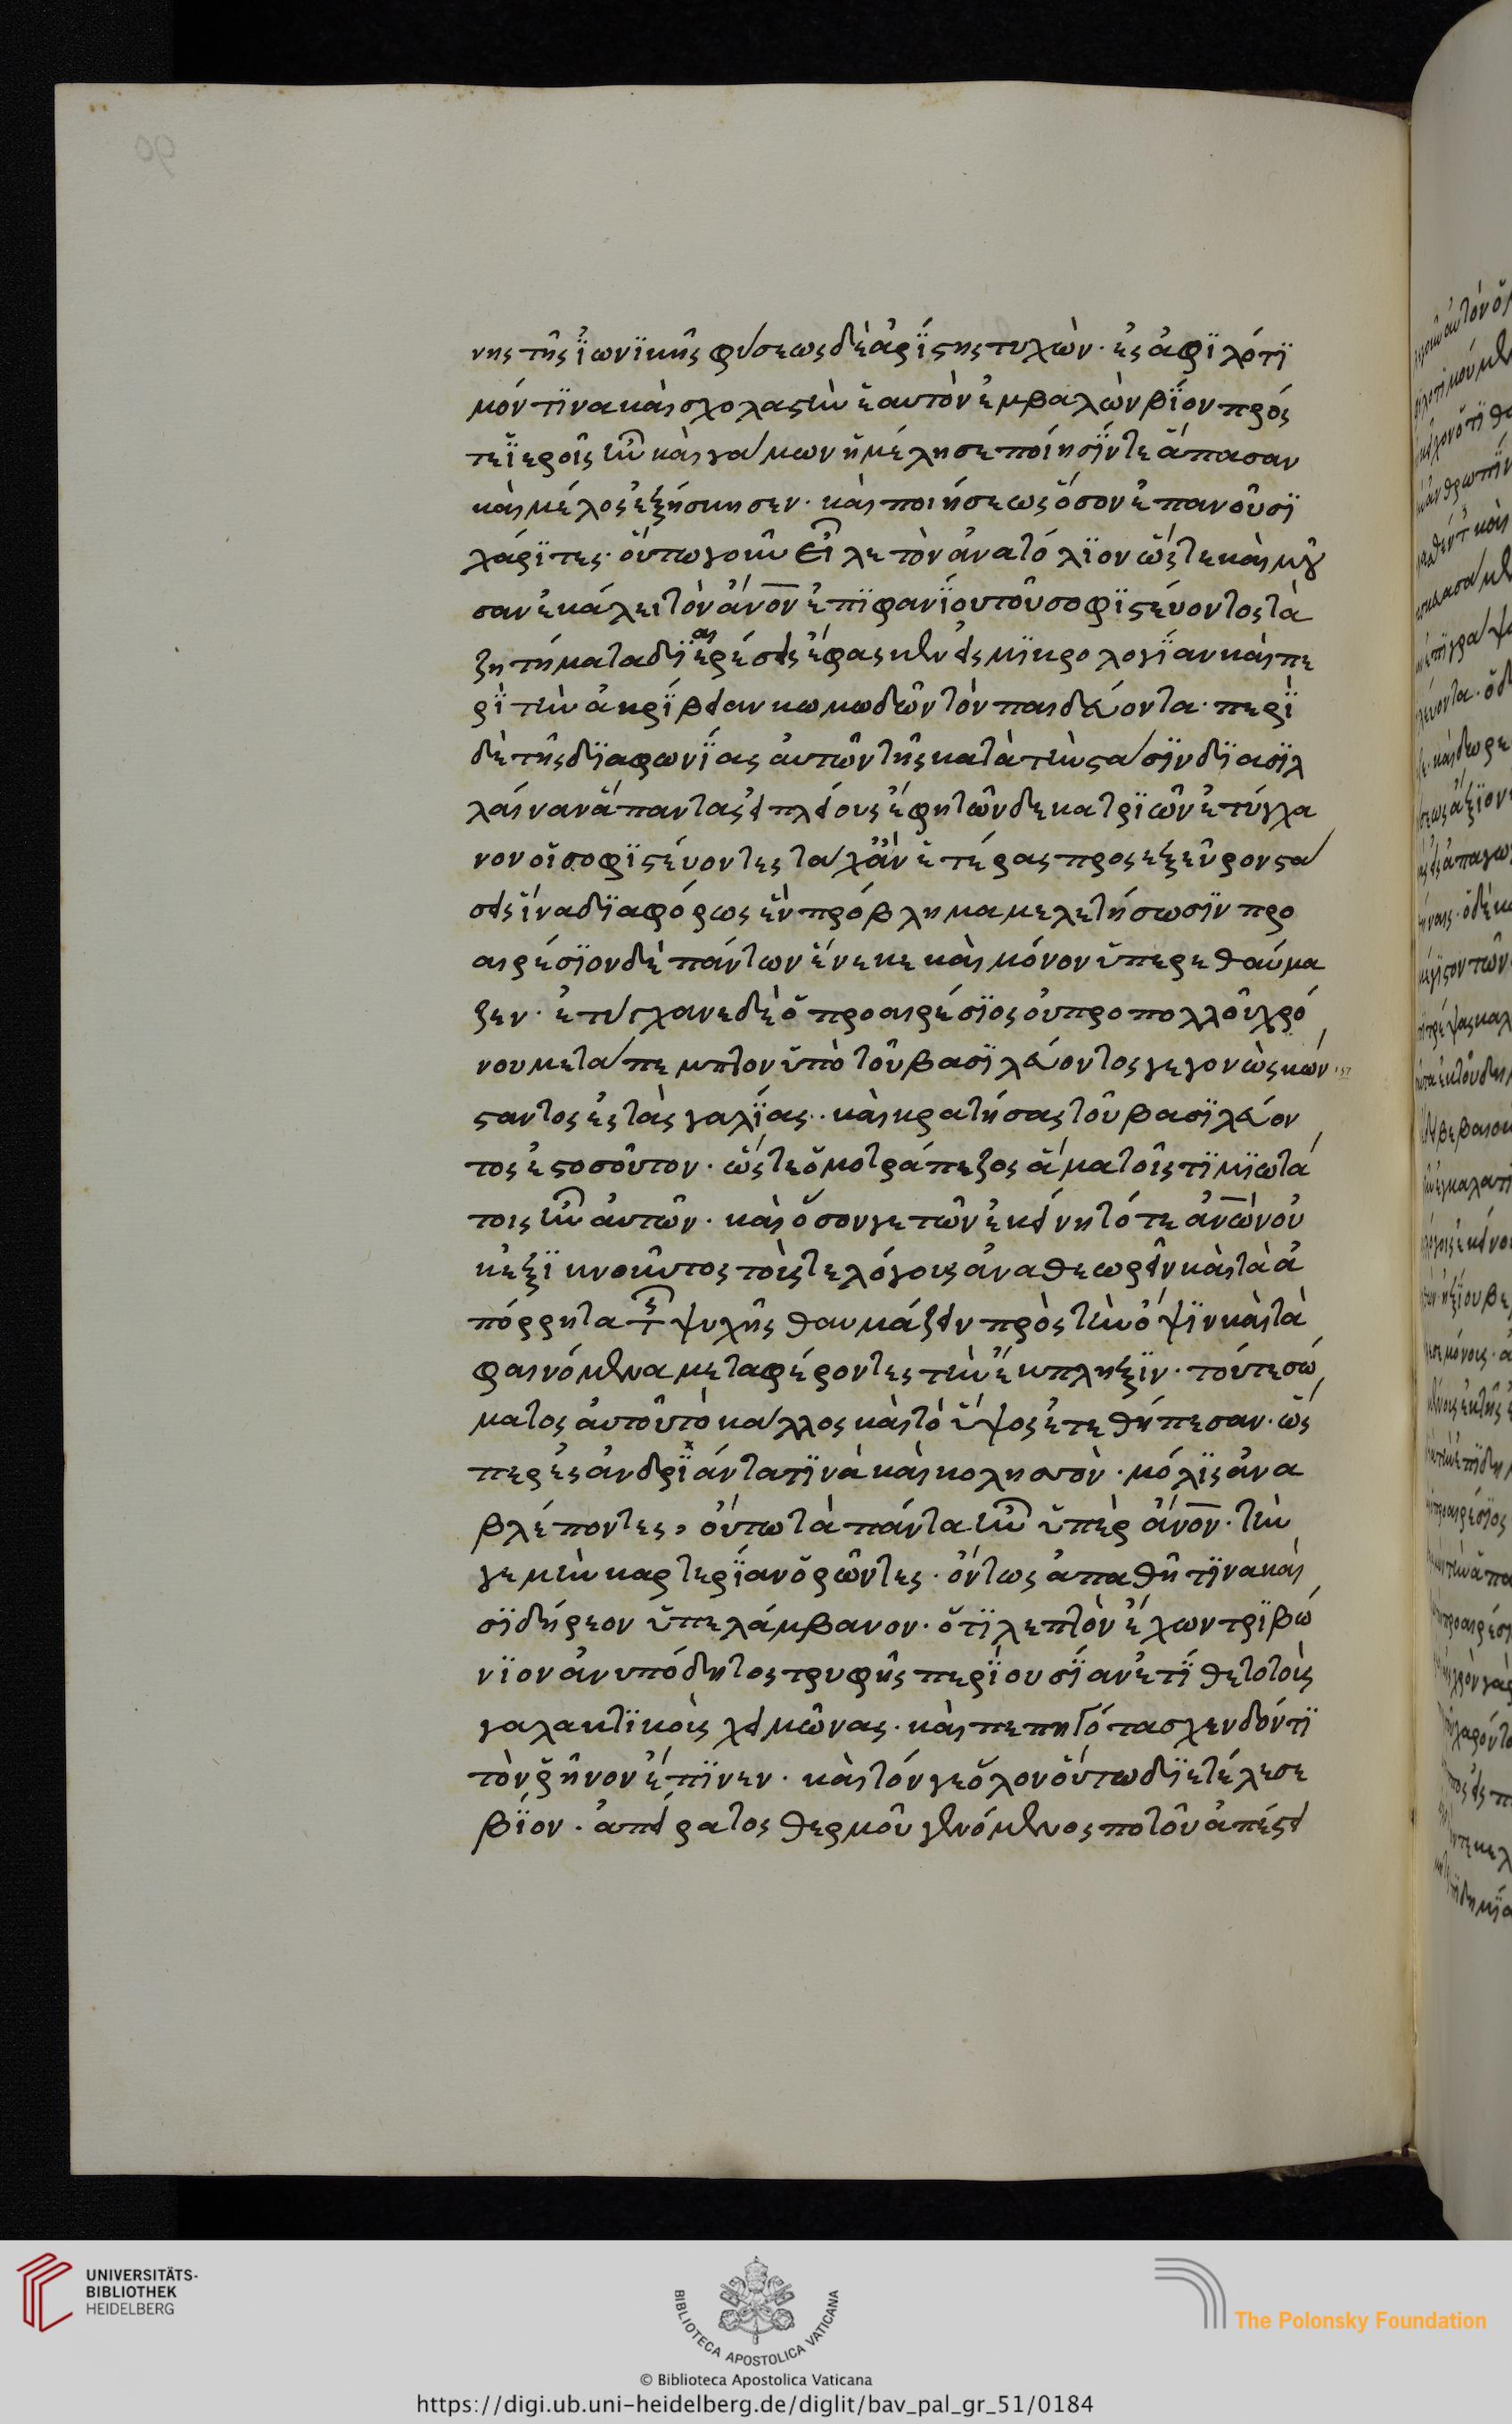 νης τῆς ἰωνικῆς φύσεως δὲ ἀρίστης τυχὼν. ἐς ἀφιλότι
μόν τινα καὶ σχολαστὴν ἑαυτὸν ἐμβαλὼν βίον πρός
τε ἱεροῖς ἦν καὶ γάμων ἠμέλησε ποίησίν τε ἅπασαν
καὶ μέλος ἐξήσκησεν. καὶ ποιήσεως ὅσον ἐπανοῦσι
χάριτες. οὕτω γοῦν εἷλε τὸν ἀνατόλιον ὥστε καὶ μοῦ
σαν ἐκάλει τὸν ἄνον ἐπιφανίου τοῦ σοφιστεύοντος τὰ
ζητήματα διερέσεις ἔφασκεν εἰς μικρολογίαν καὶ πε
ρὶ τὴν ἀκρίβειαν κωμωδῶν τὸν παιδεύοντα. περὶ
δὲ τῆς διαφωνίας αὐτῶν τῆς κατὰ τὴν στάσιν διασιλ
λαίναν ἅπαντας εἰ πλείους ἔφη τῶν δεκατριῶν ἐτύγχα
νον οἱ σοφιστεύοντες τάχ ἂν ἑτέρας προσεξεῦρον στά
σεις ἵνα διαφόρως ἓν πρόβλημα μελετήσωσιν προ
αιρέσιον δὲ πάντων ἕνεκε καὶ μόνον ὑπερεθαύμα
ζεν. ἐτύγχανε δὲ ὁ προαιρέσιος οὐ προ πολλοῦ χρό
νου μετάπεμπτον ὑπὸ τοῦ βασιλεύοντος γεγονὼς κών
σταντος ἐς τὰς γαλίας. καὶ κρατήσας τοῦ βασιλεύον
τος ἐς τοσοῦτον. ὥστε ὁμοτράπεζος ἅμα τοῖς τιμιωτά
τοις ἦν αὐτῶν. καὶ ὅσον γε τῶν ἐκεῖνη τότε ἀνών οὐ
κ ἐξικνοῦντος τοῖς τε λόγοις ἀναθεωρεῖν καὶ τὰ ἀ
πόρρητα τῆς ψυχῆς θαυμάζειν πρὸς τὴν ὄψιν καὶ τὰ
φαινόμενα μεταφέροντες τὴν ἔκπληξιν. τό τε σώ
ματος αὐτοῦ τὸ κάλλος καὶ τὸ ὕψος ἐτεθήπεσαν. ὥς
περ ἐς ἀνδριάντα τινὰ καὶ κολησσὸν. μόλις ἀνα
βλέποντες, οὕτω τὰ πάντα ἦν ὑπὲρ ἄνον. τὴν
γε μὴν καρτερίαν ὁρῶντες. ὄντως ἀπαθῆ τινα καὶ
σιδήρεον ὑπελάμβανον. ὅτι λεπτὸν ἔχων τριβώ
νιον ἀνυπόδητος τρυφῆς περιουσίαν ἐτίθετο τοὶς
γαλακτικοὶς χειμῶνας. καὶ πεπηγότα σχεδόν τι
τὸν ῥῆνον ἔπινεν. καὶ τόν γε ὅλον οὕτω διετέλεσε
βίον. ἀπείρατος θερμοῦ γενόμενος ποτοῦ ἀπέστει
UNIVERSITÄTS-
BIBLIOTHEK
HEIDELBERG
BIBLIOTECA APOSTOLICA VATICANA
The Polonsky Foundation
© Biblioteca Apostolica Vaticana
https://digi.ub.uni-heidelberg.de/diglit/bav_pal_gr_51/0184